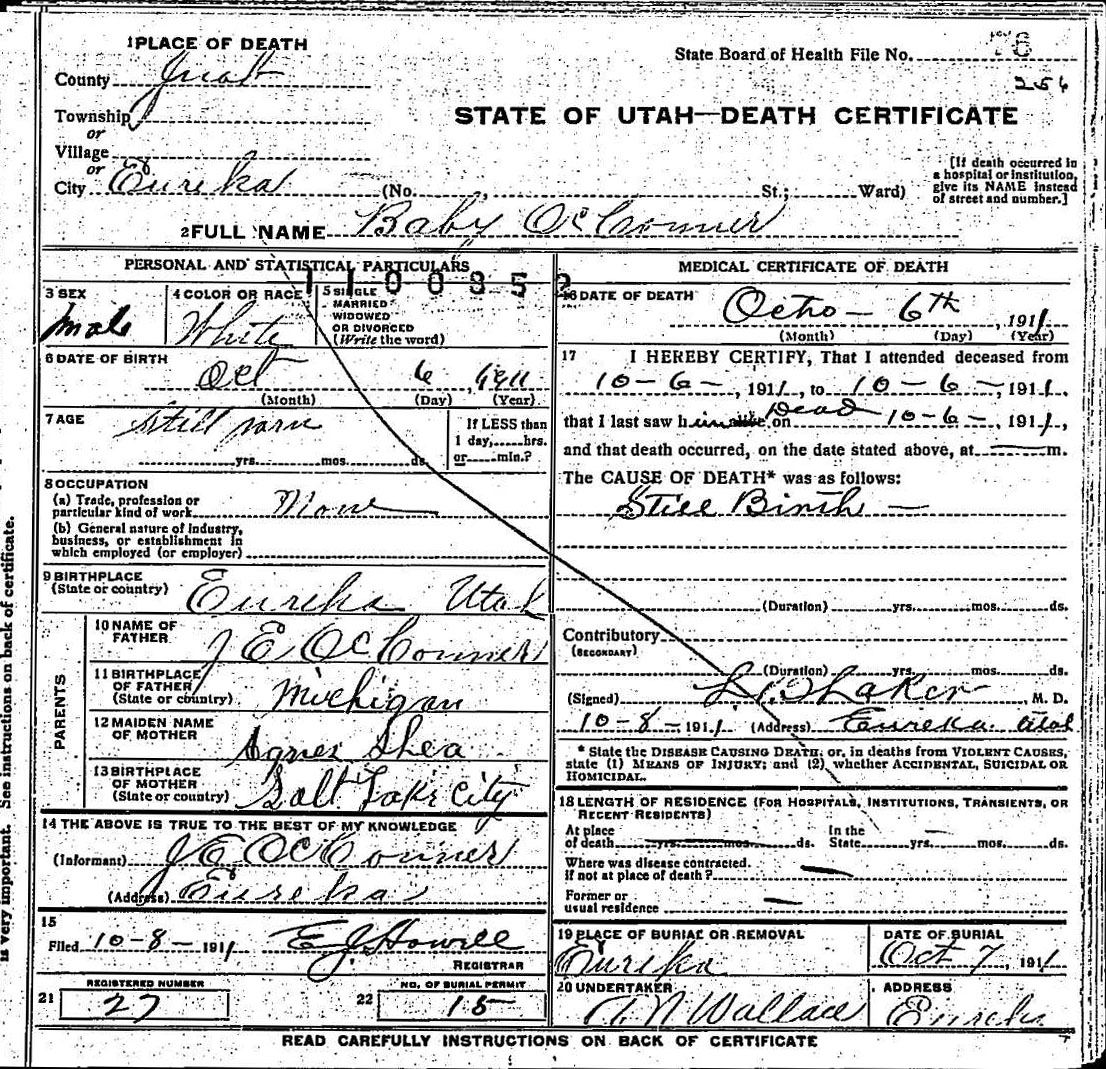 1 PLACE OF DEATH
State Board of Health File No. 76
256
County Juab
Township
or
Village
or
City Eureka (No. , St.; Ward)
STATE OF UTAH—DEATH CERTIFICATE
[If death occurred in
a hospital or institution,
give its NAME instead
of street and number.]
2 FULL NAME Baby O'Conner
PERSONAL AND STATISTICAL PARTICULARS
1100352
3 SEX
Male
4 COLOR OR RACE
White
5 SINGLE
MARRIED
WIDOWED
OR DIVORCED
(Write the word)
6 DATE OF BIRTH
Oct 6, 1911
(Month) (Day) (Year)
7 AGE
Still born
yrs. mos. ds.
If LESS than
1 day, hrs.
or min.?
8 OCCUPATION
(a) Trade, profession or
particular kind of work None
(b) General nature of industry,
business, or establishment in
which employed (or employer)
9 BIRTHPLACE
(State or country) Eureka Utah
PARENTS
10 NAME OF
FATHER J E O'Conner
11 BIRTHPLACE
OF FATHER
(State or country) Michigan
12 MAIDEN NAME
OF MOTHER Agnes Shea
13 BIRTHPLACE
OF MOTHER
(State or country) Salt Lake City
14 THE ABOVE IS TRUE TO THE BEST OF MY KNOWLEDGE
(Informant) J E O'Conner
(Address) Eureka
15
Filed 10-8-1911 E J Howell
REGISTRAR
21 REGISTERED NUMBER
27
22 NO. OF BURIAL PERMIT
15
MEDICAL CERTIFICATE OF DEATH
16 DATE OF DEATH
Octo- 6th, 1911
(Month) (Day) (Year)
17 I HEREBY CERTIFY, That I attended deceased from
10-6-, 1911, to 10-6-, 1911,
that I last saw him Dead on 10-6-, 1911,
and that death occurred, on the date stated above, at m.
The CAUSE OF DEATH* was as follows:
Still Birth
(Duration) yrs. mos. ds.
Contributory
(SECONDARY)
(Duration) yrs. mos. ds.
(Signed) Laker, M. D.
10-8-1911 (Address) Eureka Utah
* State the DISEASE CAUSING DEATH; or, in deaths from VIOLENT CAUSES,
state (1) MEANS OF INJURY; and (2) whether ACCIDENTAL, SUICIDAL OR
HOMICIDAL.
18 LENGTH OF RESIDENCE (FOR HOSPITALS, INSTITUTIONS, TRANSIENTS, OR
RECENT RESIDENTS)
At place
of death yrs. mos. ds.
In the
State yrs. mos. ds.
Where was disease contracted.
if not at place of death?
Former or
usual residence
19 PLACE OF BURIAL OR REMOVAL
Eureka
DATE OF BURIAL
Oct 7, 1911
20 UNDERTAKER
A. N Wallace
ADDRESS
Eureka
READ CAREFULLY INSTRUCTIONS ON BACK OF CERTIFICATE
is very important. See instructions on back of certificate.